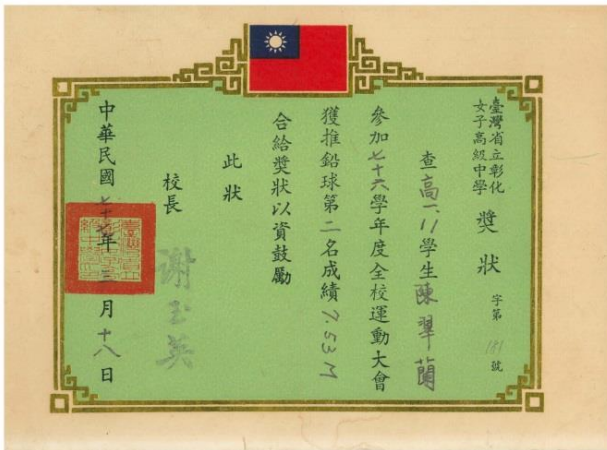 臺灣省立彰化
女子高級中學
獎狀
字第 181 號
查高一.11學生陳翠蘭
參加七十六學年度全校運動大會
獲推鉛球第二名成績7.53M
合給獎狀以資鼓勵
此狀
校長
謝玉英
中華民國七十七年三月十八日